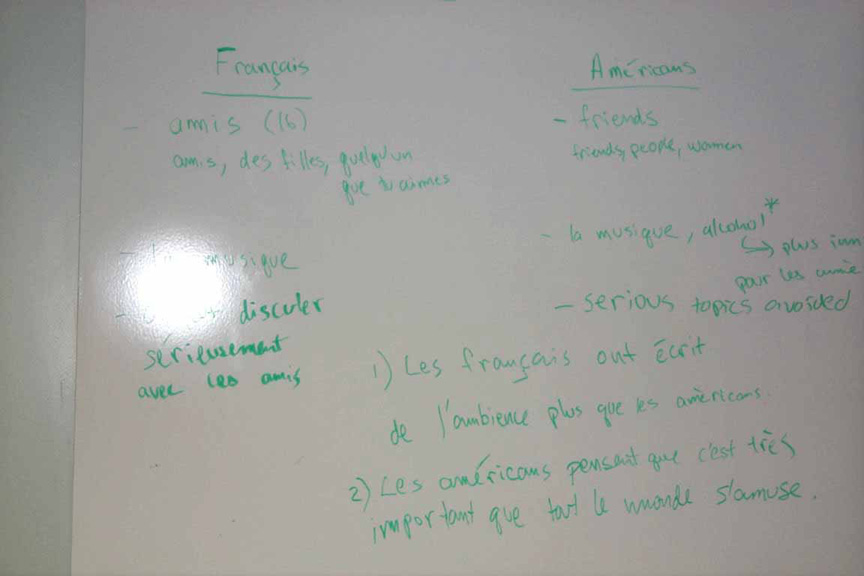 Français
- amis (16)
amis, des filles, quelqu'un
que tu aimes
- musique
- discuter
sérieusement
avec les amis
Américans
- friends
friends, people, women
- la musique, alcohol*
↳ plus
pour les
- serious topics avoided
1) Les français ont écrit
de l'ambience plus que les américans.
2) Les américans pensent que c'est très
important que tout le monde s'amuse.